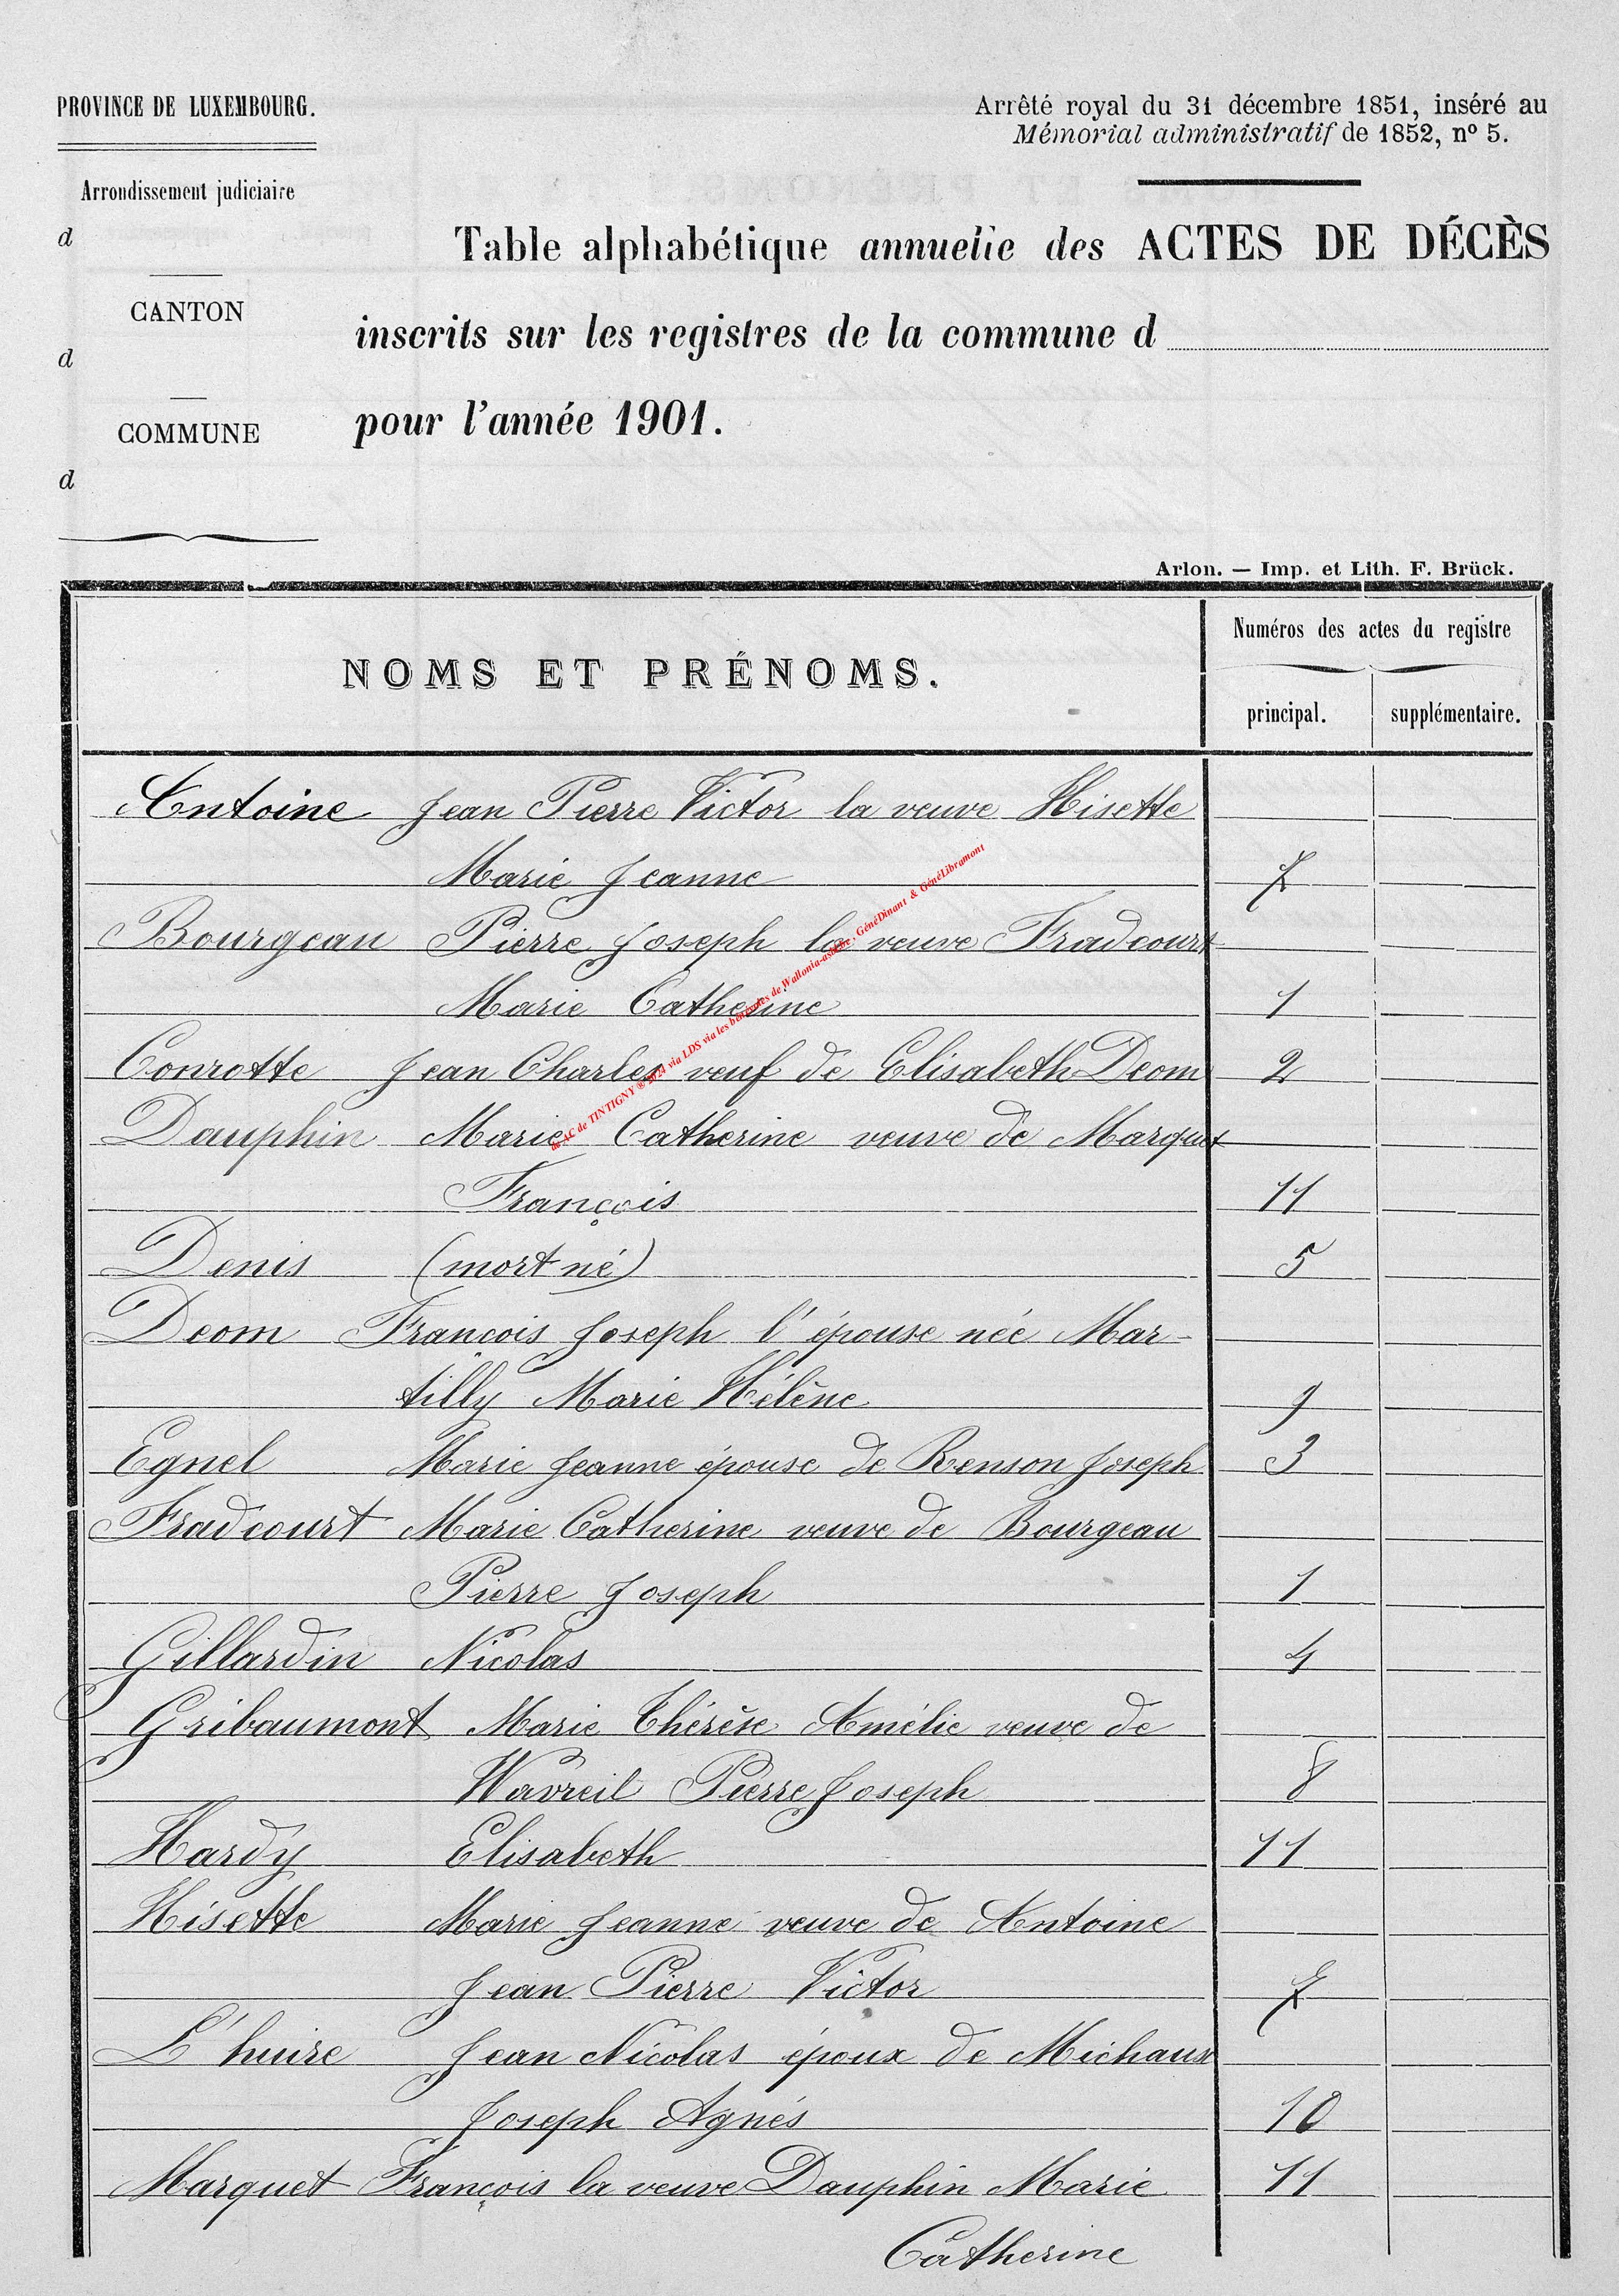 PROVINCE DE LUXEMBOURG.
Arrondissement judiciaire
d
CANTON
d
COMMUNE
d
Arrêté royal du 31 décembre 1851, inséré au
Mémorial administratif de 1852, nº 5.
Table alphabétique annuelle des ACTES DE DÉCÈS
inscrits sur les registres de la commune d
pour l'année 1901.
Arlon. — Imp. et Lith. F. Brück.
NOMS ET PRÉNOMS.
Numéros des actes du registre
principal. supplémentaire.
Antoine Jean Pierre Victor la veuve Hisette
Marie Jeanne 7
Bourgeau Pierre Joseph la veuve Fradcourt
Marie Catherine 1
Conrotte Jean Charles veuf de Elisabeth Deom 2
Dauphin Marie Catherine veuve de Marquet
François 11
Denis (mort né) 5
Deom François Joseph l'épouse née Mar-
tilly Marie Hélène 9
Egnel Marie Jeanne épouse de Renson Joseph 3
Fradcourt Marie Catherine veuve de Bourgeau
Pierre Joseph 1
Gillardin Nicolas 4
Gribaumont Marie Thérèse Amélie veuve de
Wavreil Pierre Joseph 8
Hardy Elisabeth 11
Hisette Marie Jeanne veuve de Antoine
Jean Pierre Victor 7
L'huire Jean Nicolas époux de Michaux
Joseph Agnés 10
Marquet François la veuve Dauphin Marie 11
Catherine
de AC de TINTIGNY ® 2024 via LDS via les bénévoles de Wallonia-asbl.be, GénéDinant & GénéLibramont